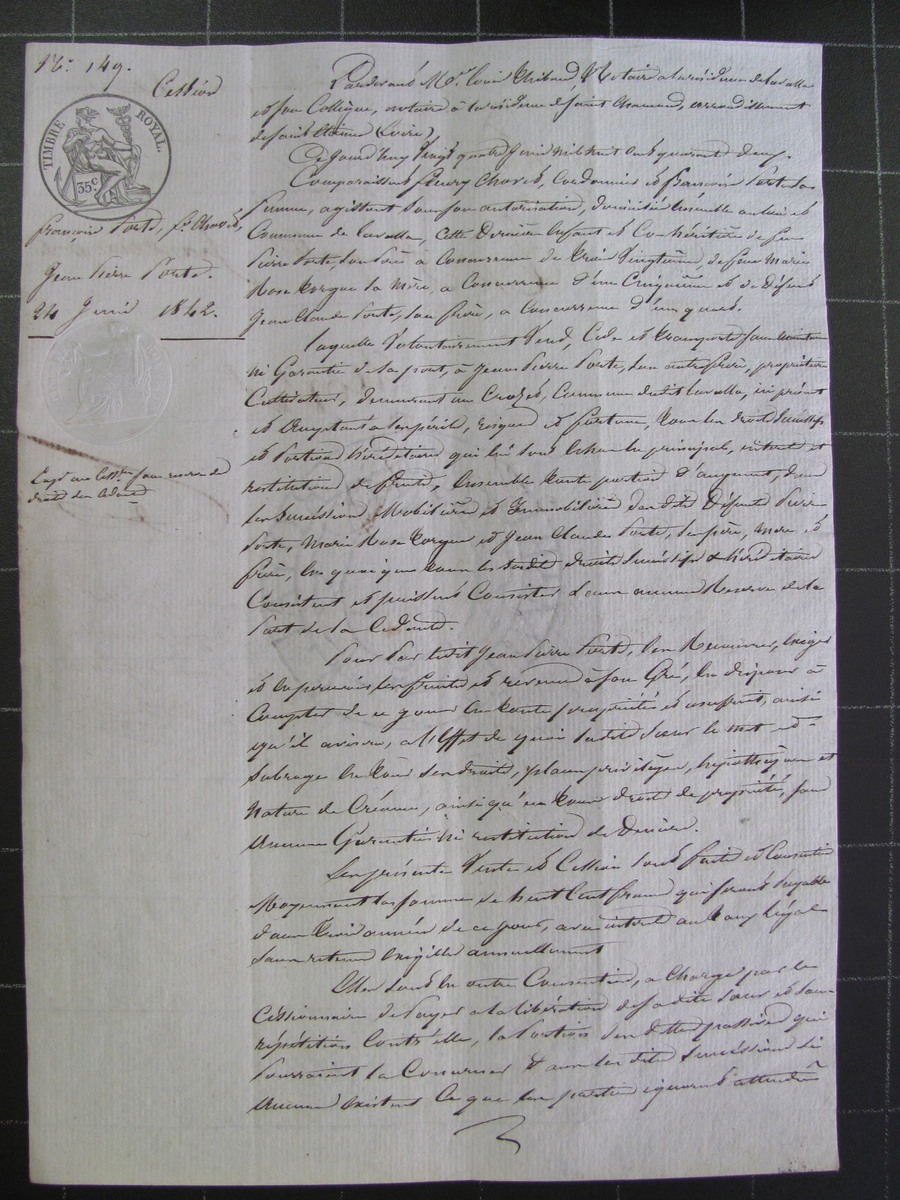 N.° 149.
Cession
TIMBRE ROYAL.
35 c
François Porte, f.e Chovet,
Jean Pierre Porte.
24 Juin 1842.
Pardevant M.e Louis Thibaud Notaire à la résidence de Lavalla
et son Collègue, notaire à la résidence de Saint Chamond, arrondissement
de Saint Etienne (Loire),
Ce Jourd'huy vingt quatre Juin mil huit cent quarante deux.
Comparaissent Fleury Chovet, Cordonnier et Françoise Porte sa
femme, agissant sous son autorisation, domiciliés ensemble au lieu et
Commune de Lavalla, cette Dernière Enfant et Co-héritière de feu
Pierre Porte, son Père à Concurrence de trois vingtième, de feue Marie
Rose sa Mère, à Concurrence d'un Cinquième et de Défunt
Jean Claude Porte, son frère, à Concurrence d'un quart.
Laquelle Volontairement Vend, Cède et transporte sans maintenue
ni Garantie de sa part, à Jean Pierre Porte, son autre frère, propriétaire
Cultivateur, demeurant au Crozet, Commune dudit Lavalla, ici présent
et Acceptant à ses périls, risques et fortune, tous les droits Successifs
et Portions héréditaires qui lui sont échus en principal, intérêt et
restitution de fruits, ensemble toute portion d'augment, dans
les Successions Mobilières et Immobilières desdits Défunts Pierre
Porte, Marie Rose et Jean Claude Porte, ses père, mère et
frère, en quoi que tous les susdits droits Successifs et héréditaires
Consistent et puissent Consister sans aucune Réserve de la
Part de la Cédante.
Pour Par ledit Jean Pierre Porte, les Recouvrer, exiger
et en percevoir les fruits et revenus à son Gré, en disposer à
Compter de ce jour en toute propriété et usufruit, ainsi
qu'il avisera, à l'Effet de quoi sadite sœur le met et
Subroge en tous ses droits, places, privilèges, hypothèques et
Nature de Créance, ainsi qu'en tous droits de propriété, sans
Aucune Garantie ni restitution de Deniers.
Les présentes Vente et Cession sont faites et Consenties
Moyennant la somme de huit Cent francs qui seront Payables
dans trois années de ce jour, avec intérêt au taux légal
sans retenue exigible annuellement
Elles sont en outre Consenties, à Charge par le
Cessionnaire de Payer à la libération de sadite sœur et sans
répétition Contr'elle, la portion des dettes passives qui
Pourraient la Concerner dans lesdites Successions si
Aucune existent Ce que les parties ignorent attendu